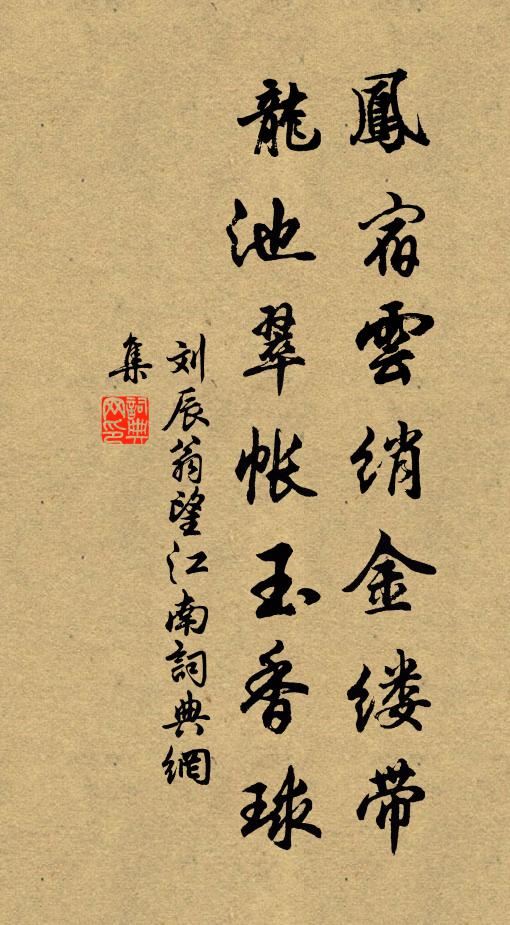 鳳宿雲綃金缕带
龍池翠帐玉香球
刘辰翁望江南詞典網
集
詞典网印